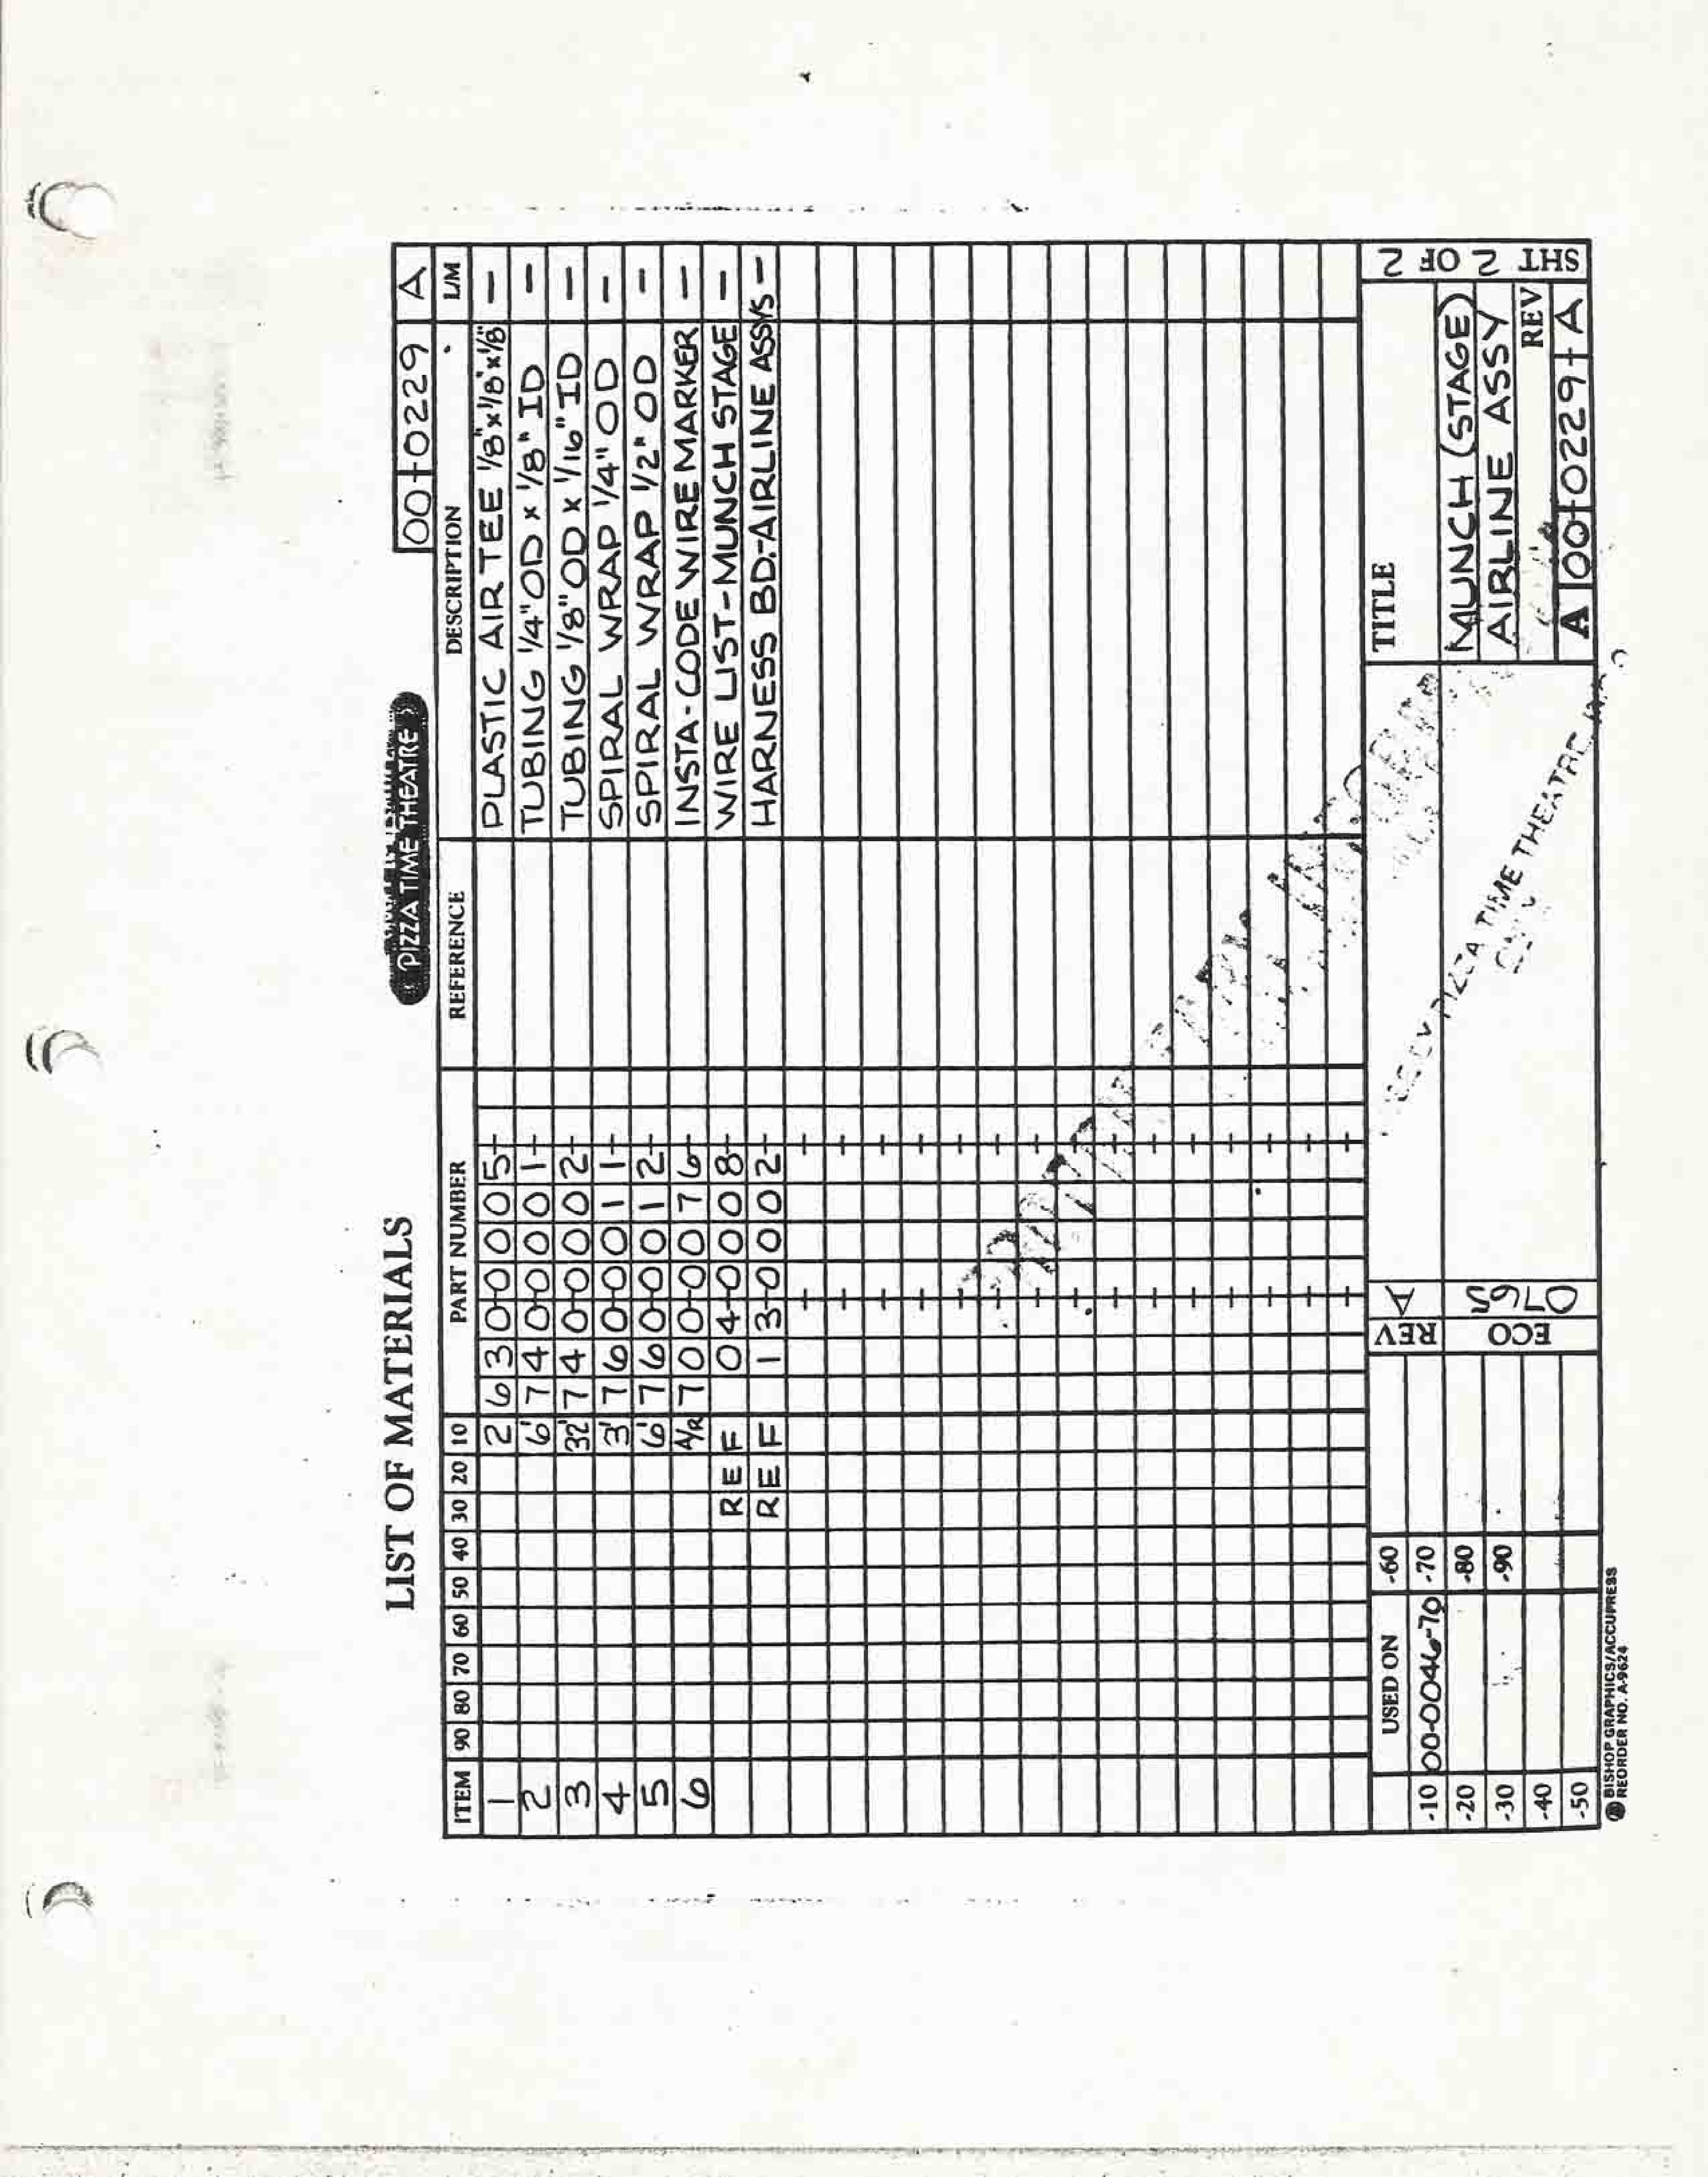 LIST OF MATERIALS
PIZZA TIME THEATRE
00-0229 A
ITEM 90 80 70 60 50 40 30 20 10 PART NUMBER REFERENCE DESCRIPTION L/M
1 2 630-0005- PLASTIC AIR TEE 1/8"x1/8"x1/8" -
2 6' 740-0001- TUBING 1/4" OD x 1/8" ID -
3 32' 740-0002- TUBING 1/8" OD x 1/16" ID -
4 3' 760-0011- SPIRAL WRAP 1/4" OD -
5 6' 760-0012- SPIRAL WRAP 1/2" OD -
6 A/R 700-0076- INSTA-CODE WIRE MARKER -
REF 04-0008- WIRE LIST-MUNCH STAGE -
REF 13-0002- HARNESS BD.-AIRLINE ASSYS -
USED ON -60 REV A TITLE SHT 2 OF 2
-10 00-0046-70 -70
-20 -80 ECO 0765 MUNCH (STAGE)
-30 -90 AIRLINE ASSY
-40 REV
-50 A 00-0229- A
PIZZA TIME THEATRE
BISHOP GRAPHICS/ACCUPRESS
REORDER NO. A-9624